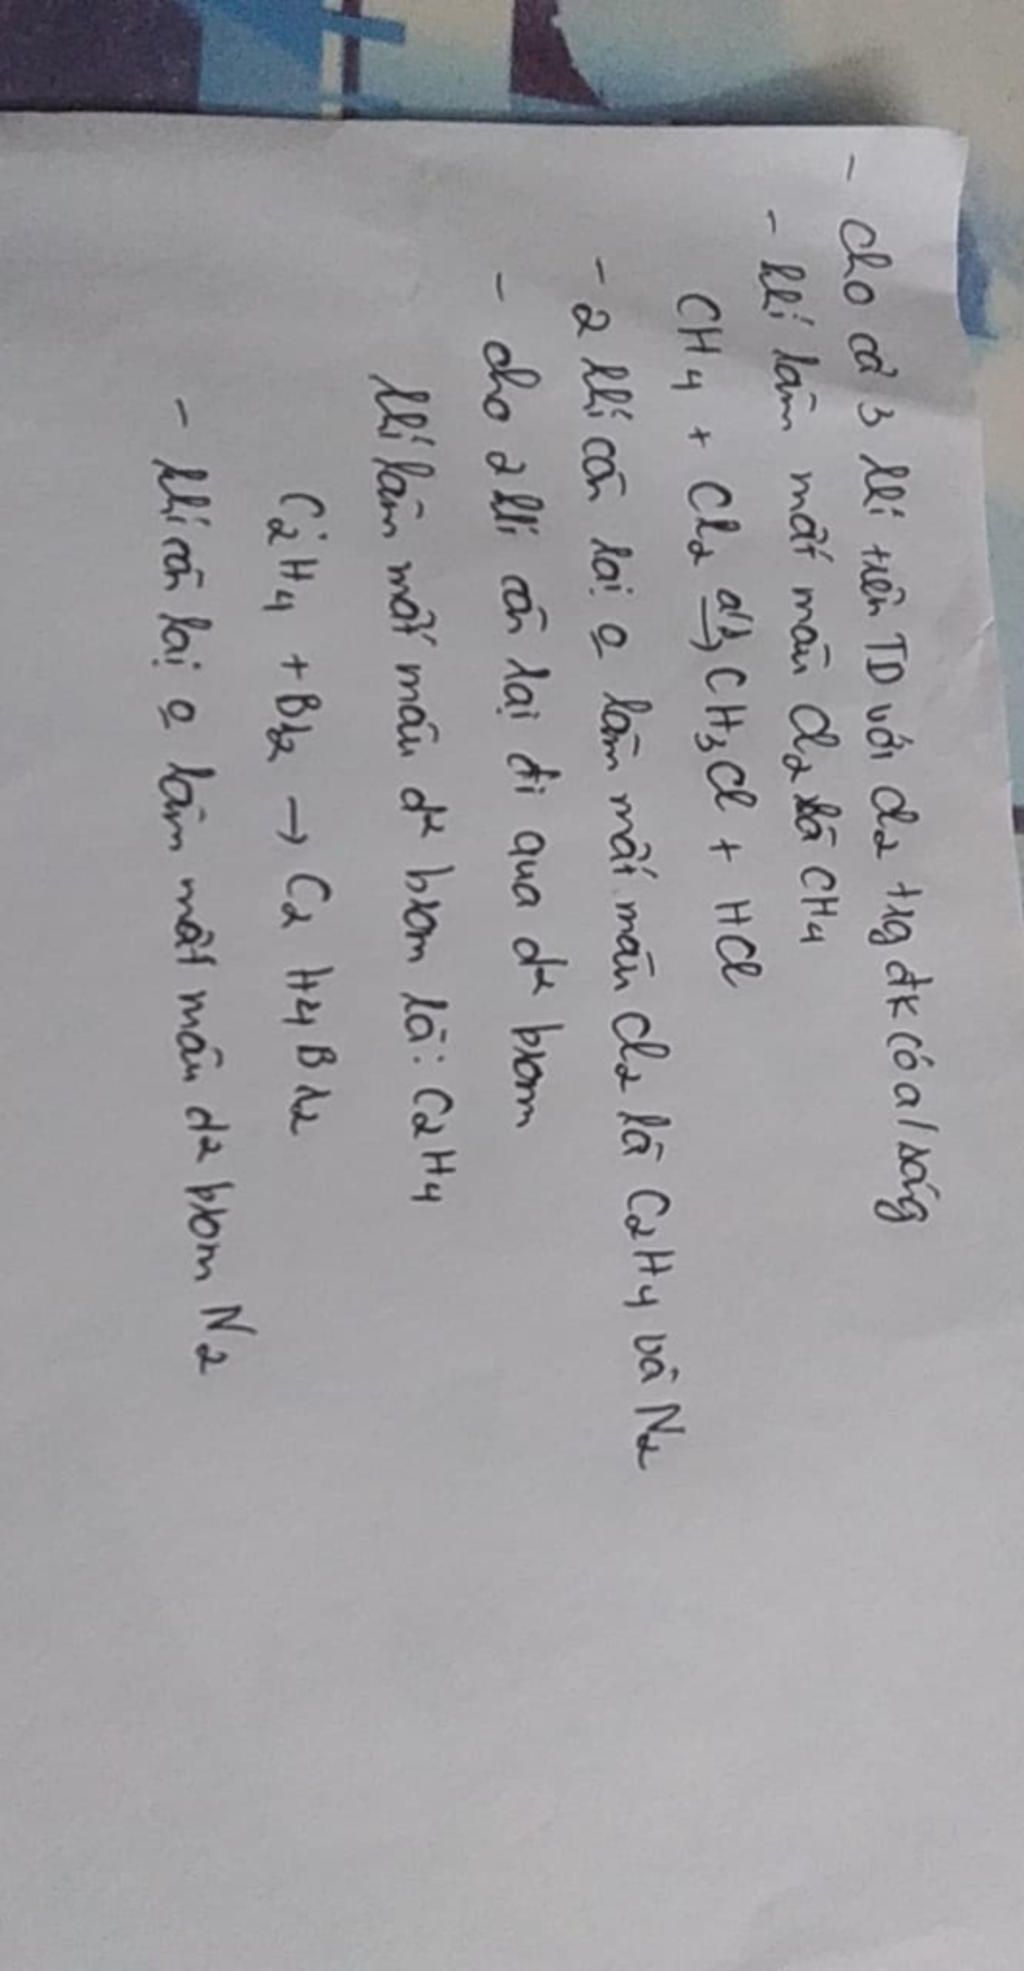 - Cho cả 3 khí trên TD với Cl2 trg đk có a/sáng
- khí làm mất màu Cl2 là CH4
CH4 + Cl2 a/s→ CH3Cl + HCl
- 2 khí còn lại o làm mất màu Cl2 là C2H4 và N2
- cho 2 khí còn lại đi qua d2 brom
khí làm mất màu d2 brom là: C2H4
C2H4 + Br2 → C2H4Br2
- khí còn lại o làm mất màu d2 brom N2